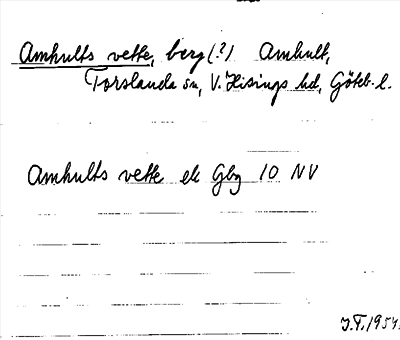 Amhults vette, berg (?) Amhult,
Torslanda sn, V. Hisings hd, Göteb. l.
Amhults vette ek Gbg 10 NV
J.F. 1954.